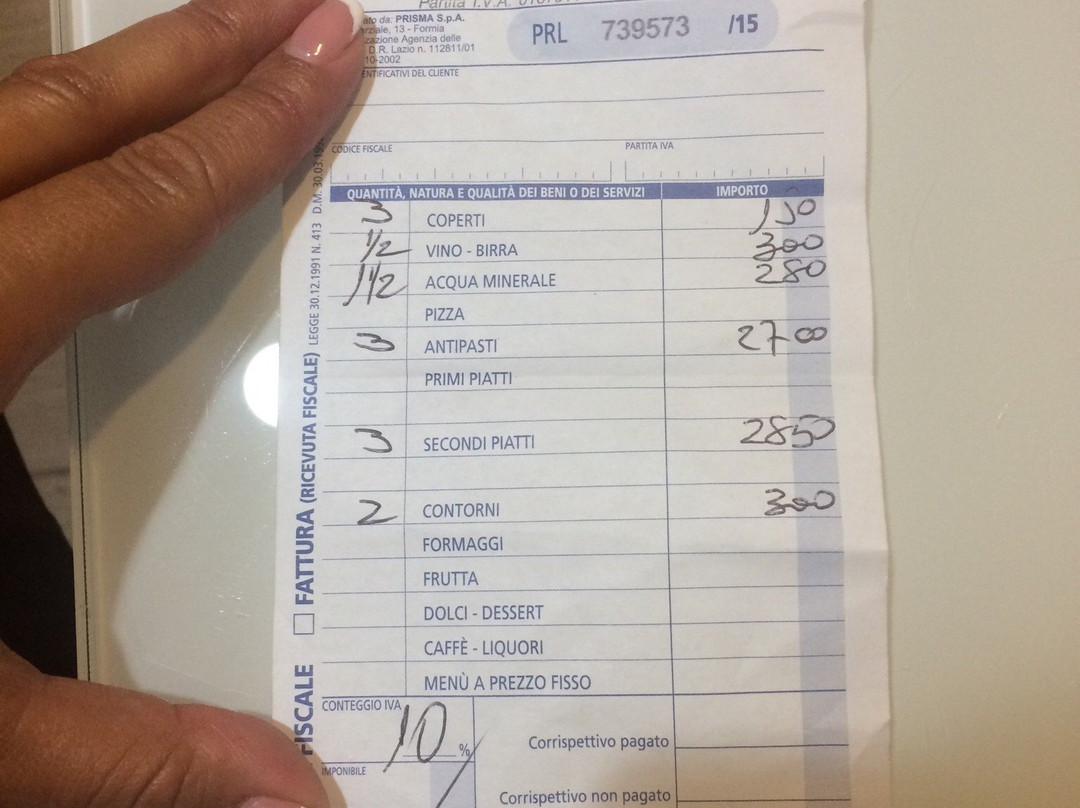 Partita I.V.A.
ato da: PRISMA S.p.A.
rziale, 13 - Formia
zazione Agenzia delle
D.R. Lazio n. 112811/01
10-2002
PRL 739573 /15
ENTIFICATIVI DEL CLIENTE
CODICE FISCALE PARTITA IVA
QUANTITÀ, NATURA E QUALITÀ DEI BENI O DEI SERVIZI IMPORTO
3 COPERTI 150
1/2 VINO - BIRRA 300
1 1/2 ACQUA MINERALE 280
PIZZA
3 ANTIPASTI 2700
PRIMI PIATTI
3 SECONDI PIATTI 2850
2 CONTORNI 300
FORMAGGI
FRUTTA
DOLCI - DESSERT
CAFFÈ - LIQUORI
MENÙ A PREZZO FISSO
CONTEGGIO IVA
10 %
Corrispettivo pagato
IMPONIBILE
Corrispettivo non pagato
FISCALE FATTURA (RICEVUTA FISCALE) LEGGE 30.12.1991 N. 413 D.M. 30.03.199